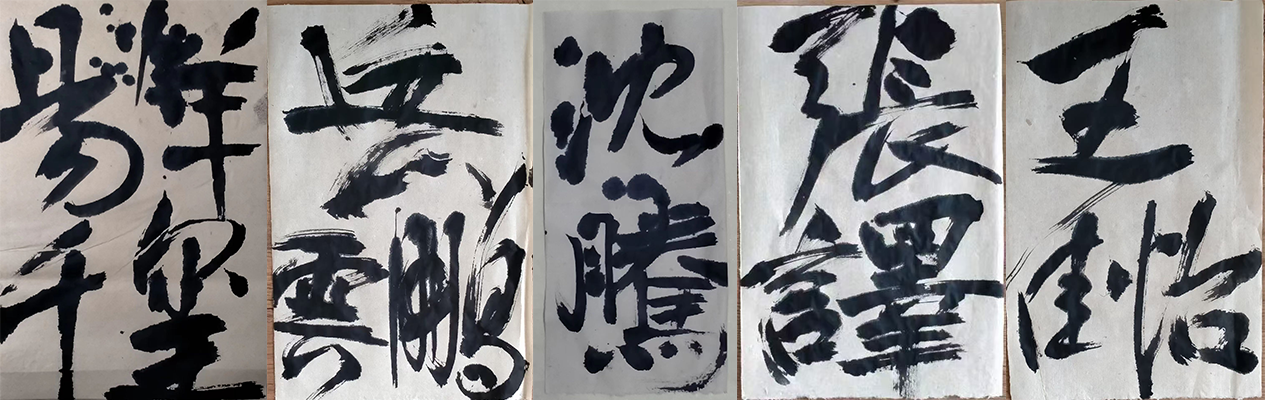 易烊
千玺
岳
雲鵬
沈
騰
張
譯
王
佳怡